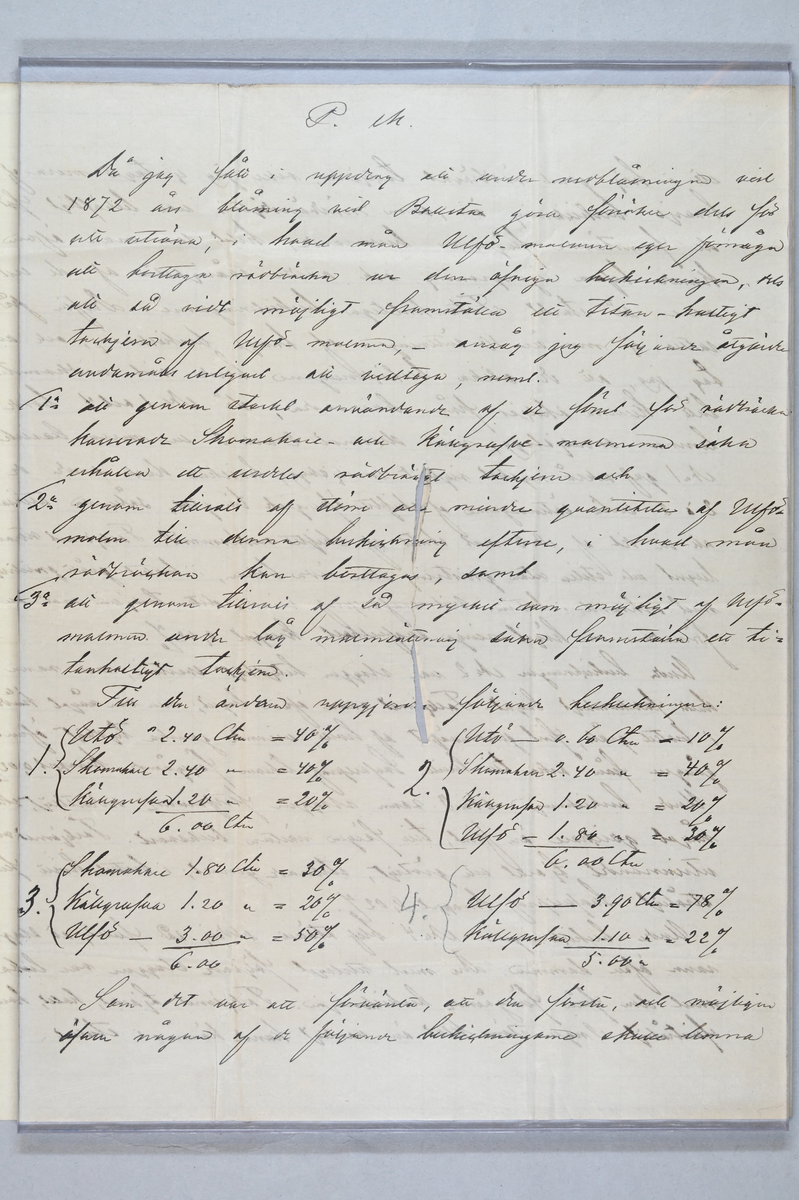 P. M.
Då jag fått i uppdrag att under nedblåsningen vid
1872 års blåsning vid Backa göra försöker dels för
att utröna, i hvad mån Ulfö-malmen eger förmåga
att borttaga rödbräcka ur den öfriga beskickningen, dels
att så vidt möjligt framställa ett titan-haltigt
tackjern af Ulfö-malmen, – ansåg jag följande åtgärder
ändamåls enligast att vidtaga, neml.
1º att genom starkt användande af de förut för rödbräcka
kasserade Skomakare- och Källgrufve-malmerna söka
erhålla ett särdeles rödbräckt tackjern och
2º genom tillsats af större och mindre quantiteter af Ulfö-
malm till denna beskickning efterse, i hvad mån
rödbräckan kan borttagas, samt
3º att genom tillsats af så mycket som möjligt af Ulfö-
malmen under låg malmsättning söka framställa ett ti-
tanhaltigt tackjern.
Till den ändan uppgjordes följande beskickningar:
1. Utö " 2.40 Ctr = 40%
Skomakare 2.40 " = 40%
Källgrufvan 1.20 " = 20%
6.00 Ctr
2. Utö — 0.60 Ctr = 10%
Skomakare 2.40 " = 40%
Källgrufvan 1.20 " = 20%
Ulfö — 1.80 " = 30%
6.00 Ctr
3. Skomakare 1.80 Ctr = 30%
Källgrufvan 1.20 " = 20%
Ulfö — 3.00 " = 50%
6.00
4. Ulfö — 3.90 Ctr = 78%
Källgrufvan 1.10 " = 22%
5.00 "
Som det var att förvänta, att den första, och möjligen
äfven någon af de följande beskickningarne skulle lemna